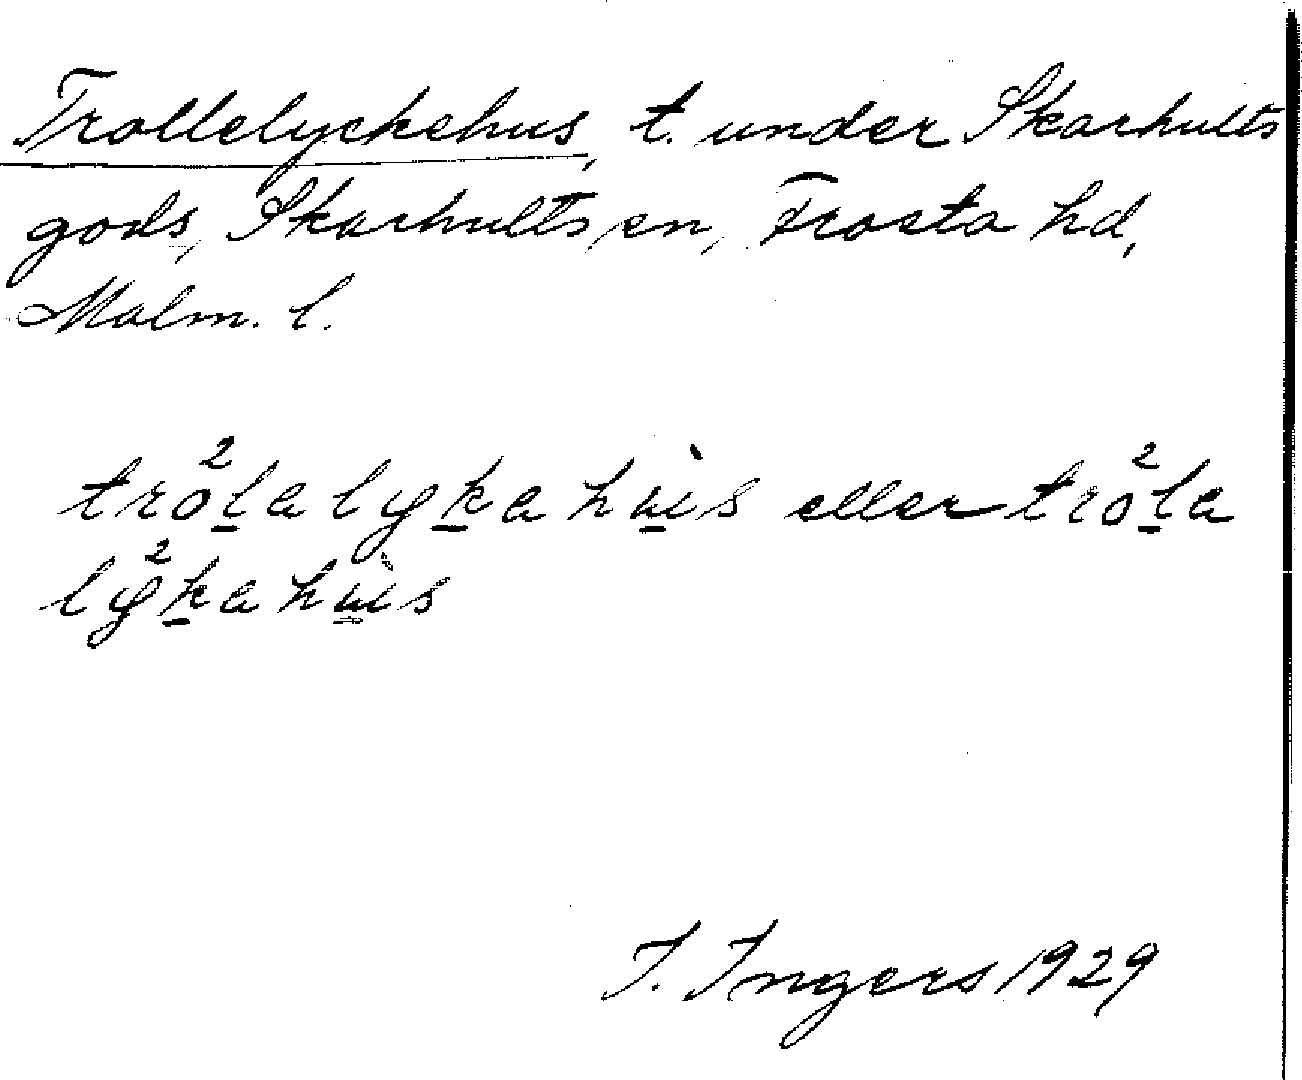 Trollelyckehus, t. under Skarhults
gods, Skarhults sn, Frosta hd,
Malm. l.
trö²l̲a lyk̲a hù̲s eller trö²l̲a
ly²k̲a hù̲s
I. Ingers 1929